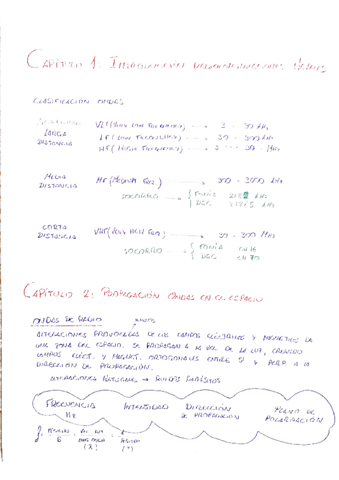 CAPÍTULO 1: RADIOCOMUNICACIONES
CLASIFICACIÓN ONDAS
LARGA DISTANCIA
VLF (VERY LOW FREQUENCY) → 3 - 30 kHz
LF (LOW FREQUENCY) → 30 - 300 kHz
HF (HIGH FREQUENCY) → 3 - 30 MHz
MEDIA DISTANCIA
MF (MEDIUM FREQ) → 300 - 3000 kHz
SOCORRO → { FONÍA 2182 kHz
DSC 2187,5 kHz
CORTA DISTANCIA
VHF (VERY HIGH FREQ) → 30 - 300 MHz
SOCORRO → { FONÍA CH 16
DSC CH 70
CAPÍTULO 2: PROPAGACIÓN ONDAS EN EL ESPACIO
ONDAS DE RADIO
ALTERACIONES PROVOCADAS DE LOS CAMPOS ELÉCTRICOS Y MAGNÉTICOS DE
UNA ZONA DEL ESPACIO. SE PROPAGAN A LA VEL. DE LA LUZ, CREANDO
CAMPOS ELÉCT. Y MAGNÉT. ORTOGONALES ENTRE SÍ Y PERP. A LA
DIRECCIÓN DE PROPAGACIÓN.
ALTERACIONES NATURALES → RUIDOS PARÁSITOS
FRECUENCIA
Hz
INTENSIDAD
DIRECCIÓN
DE PROPAGACIÓN
PLANO DE
POLARIZACIÓN